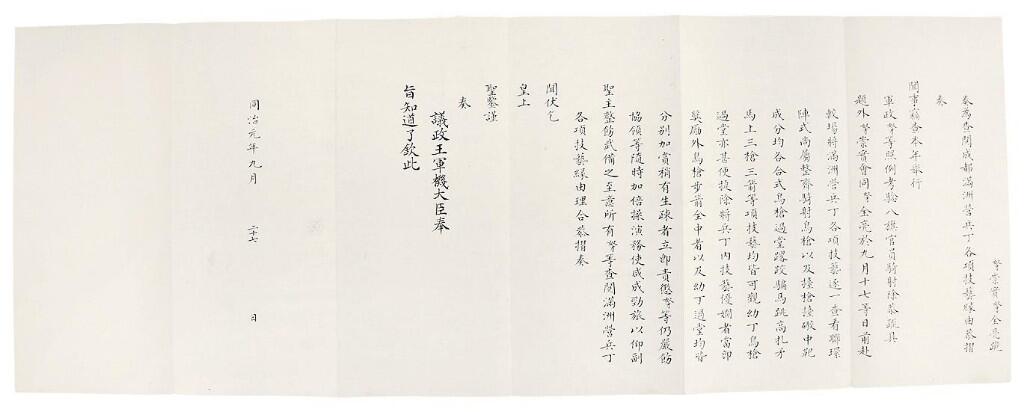 奴才崇實奴才全亮跪
奏為查閱成都滿洲營兵丁各項技藝緣由恭摺
奏
聞事竊查本年舉行
軍政奴才等照例考驗八旗官員騎射除恭疏具
題外奴才崇實會同奴才全亮於九月十七等日前赴
較場將滿洲營兵丁各項技藝逐一查看聯環
陣式尚屬整齊騎射鳥槍以及擡槍擡礮中靶
成分均各合式鳥槍過堂躧跤騙馬跳高扎矛
馬上三槍三箭等項技藝均皆可觀幼丁鳥槍
過堂亦甚便捷除將兵丁內技藝優嫻者當即
獎勵外鳥槍步箭全中者以及幼丁過堂均皆
分別加賞稍有生疎者立即責懲奴才等仍嚴飭
協領等隨時加倍操演務使咸成勁旅以仰副
聖主整飭武備之至意所有奴才等查閱滿洲營兵丁
各項技藝緣由理合恭摺奏
聞伏乞
皇上
聖鑒謹
奏
議政王軍機大臣奉
旨知道了欽此
同治元年九月 二十七 日